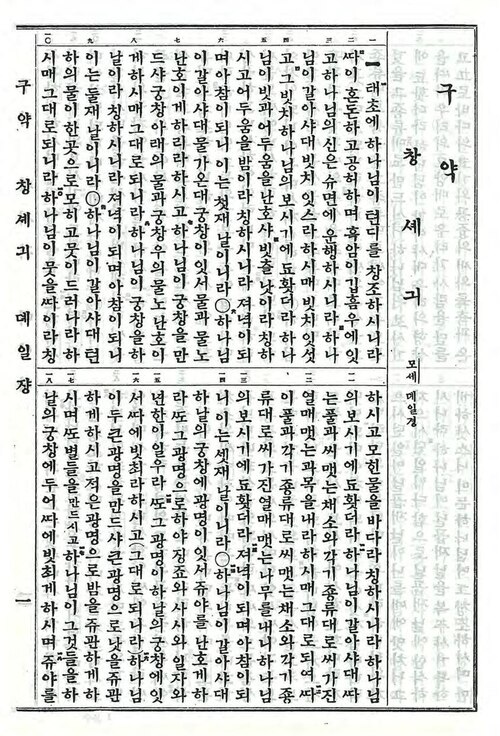 구약
창셰긔
모세 뎨일경
一 二 三 四 五 六 七 八 九 一〇
태초에하나님이텬디를창조하시니라
ᄯᅡ이혼돈하고공허하며흑암이깁흠우에잇
고하나님의신은슈면에운행하시니라하나
님이갈아샤대빗치잇스라하시매빗치잇섯
고그빗치하나님의보시기에됴홧더라하나
님이빗과어두움을난호샤빗츨낫이라칭하
시고어두움을밤이라칭하시니라져녁이되
며아참이되니이는첫재날이니라○하나님
이갈아샤대물가온대궁창이잇서물과물노
난호이게하리라하시고하나님이궁창을만
드샤궁창아래의물과궁창우의물노난호이
게하시매그대로되니라하나님이궁창을하
날이라칭하시니라져녁이되며아참이되니
이는둘재날이니라○하나님이갈아샤대텬
하의물이한곳으로모히고뭇이드러나라하
시매그대로되니라하나님이뭇을ᄯᅡ이라칭
一一 一二 一三 一四 一五 一六 一七 一八
하시고모힌물을바다라칭하시니라하나님
의보시기에됴홧더라하나님이갈아샤대ᄯᅡ
는풀과씨맷는채소와각기종류대로씨가진
열매맷는과목을내라하시매그대로되여ᄯᅡ
이풀과각기종류대로씨맷는채소와각기종
류대로씨가진열매맷는나무를내니하나님
의보시기에됴홧더라져녁이되며아참이되
니이는셋재날이니라○하나님이갈아샤대
하날의궁창에광명이잇서쥬야를난호게하
라ᄯᅩ그광명으로하야징죠와사시와일자와
년한이일우라ᄯᅩ그광명이하날의궁창에잇
서ᄯᅡ에빗최라하시고(그대로되니라)하나님
이두큰광명을만드샤큰광명으로낫을쥬관
하게하시고적은광명으로밤을쥬관하게하
시며ᄯᅩ별들을만드시고하나님이그것들을하
날의궁창에두어ᄯᅡ에빗최게하시며쥬야를
구약 창셰긔 뎨일쟝
一